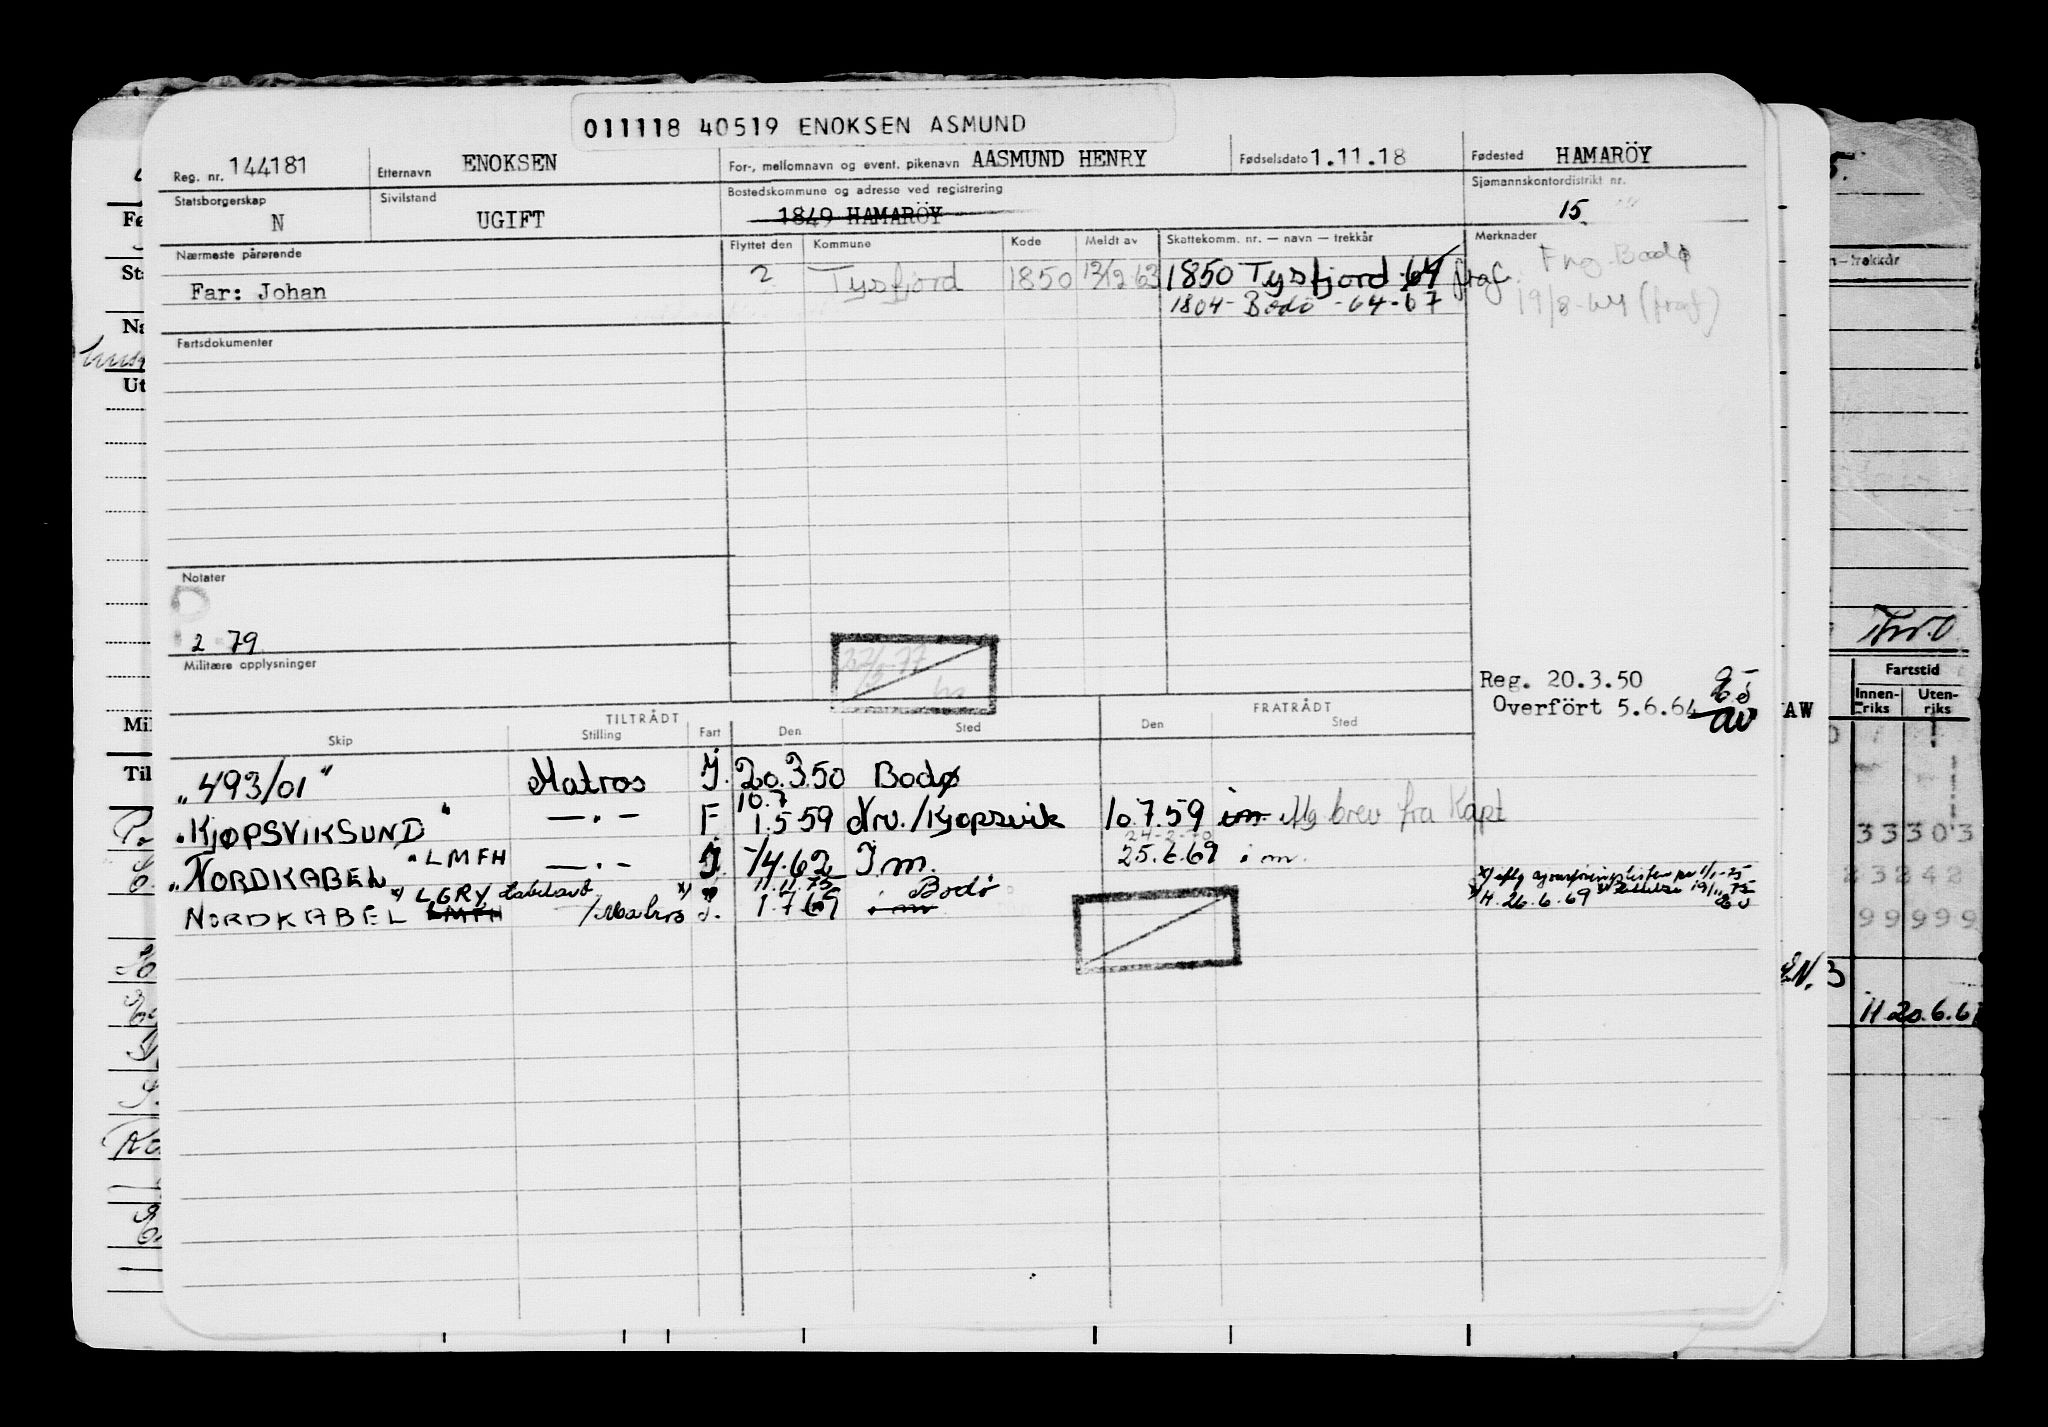 011118 40519 ENOKSEN ASMUND
Reg. nr. 144181 Etternavn ENOKSEN For-, mellomnavn og event. pikenavn AASMUND HENRY Fødselsdato 1.11.18 Fødested HAMARÖY
Statsborgerskap N Sivilstand UGIFT Bostedskommune og adresse ved registrering 1849 HAMARÖY Sjømannskontordistrikt nr. 15
Nærmeste pårørende Flyttet den Kommune Kode Meldt av Skattekomm. nr. — navn — trekkår Merknader
Far: Johan 2 Tysfjord 1850 13/12-63 1850 Tysfjord 64 fraf.
1804 - Bodö - 64-67 19/8-64 (fraf)
Fartsdokumenter
Notater
2 79
Militære opplysninger
Reg. 20.3.50
Overfört 5.6.64
TILTRÅDT FRATRÅDT
Skip Stilling Fart Den Sted Den Sted
"493/01" Matros J. 20.3.50 Bodø
10.7
"KJØPSVIKSUND" — . — F 1.5 59 Nrv./Kjøpsvik 10.7.59 im Mg brev fra Kapt
24-2-70
"NORDKABEL" LMFH — . — J. 1/4.62 I m. 25.6.69 i m.
11.11.75 Bodö
NORDKABEL x) LGRY LMFH / Matros J. 1.7.69 i m H. 26.6.69
Fartstid
Innenriks Utenriks
33303
23242
99999
EN. 3
H 20.6.6
AW
Fø
Sta
Na
Ut
Mil
Til